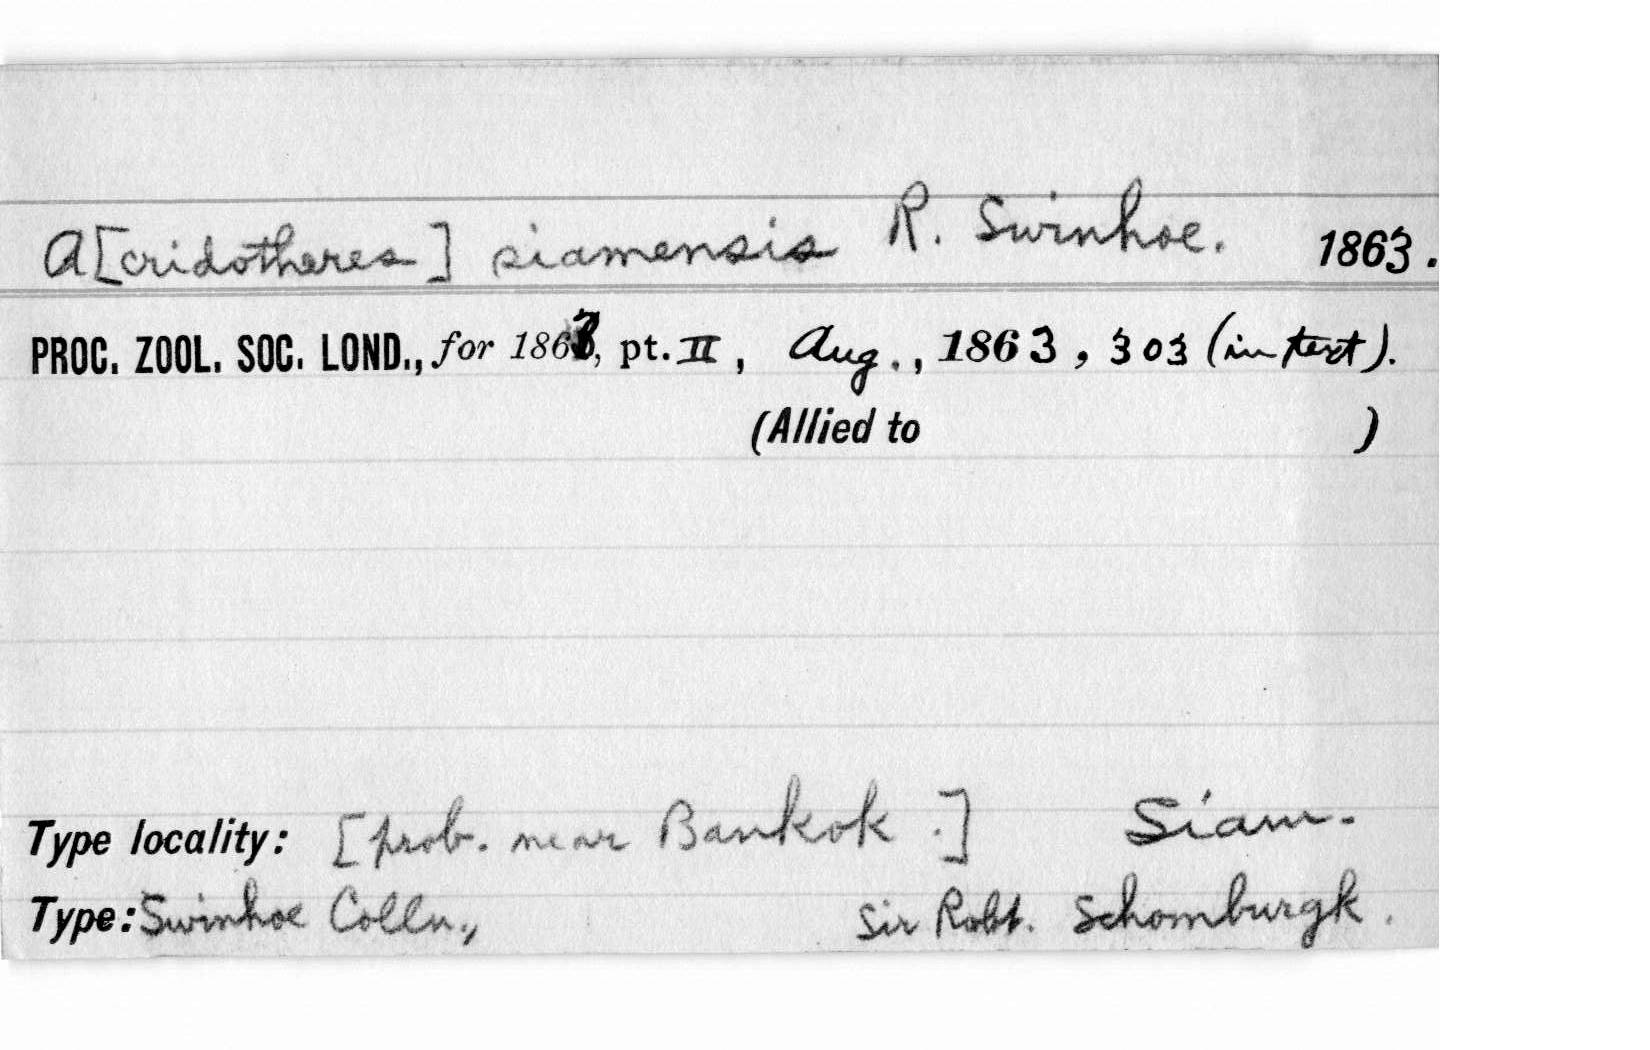 A[cridotheres] siamensis R. Swinhoe. 1863.
PROC. ZOOL. SOC. LOND., for 1863, pt. II, Aug., 1863, 303 (in text).
(Allied to )
Type locality: [prob. near Bankok.] Siam.
Type: Swinhoe Colln., Sir Robt. Schomburgk.